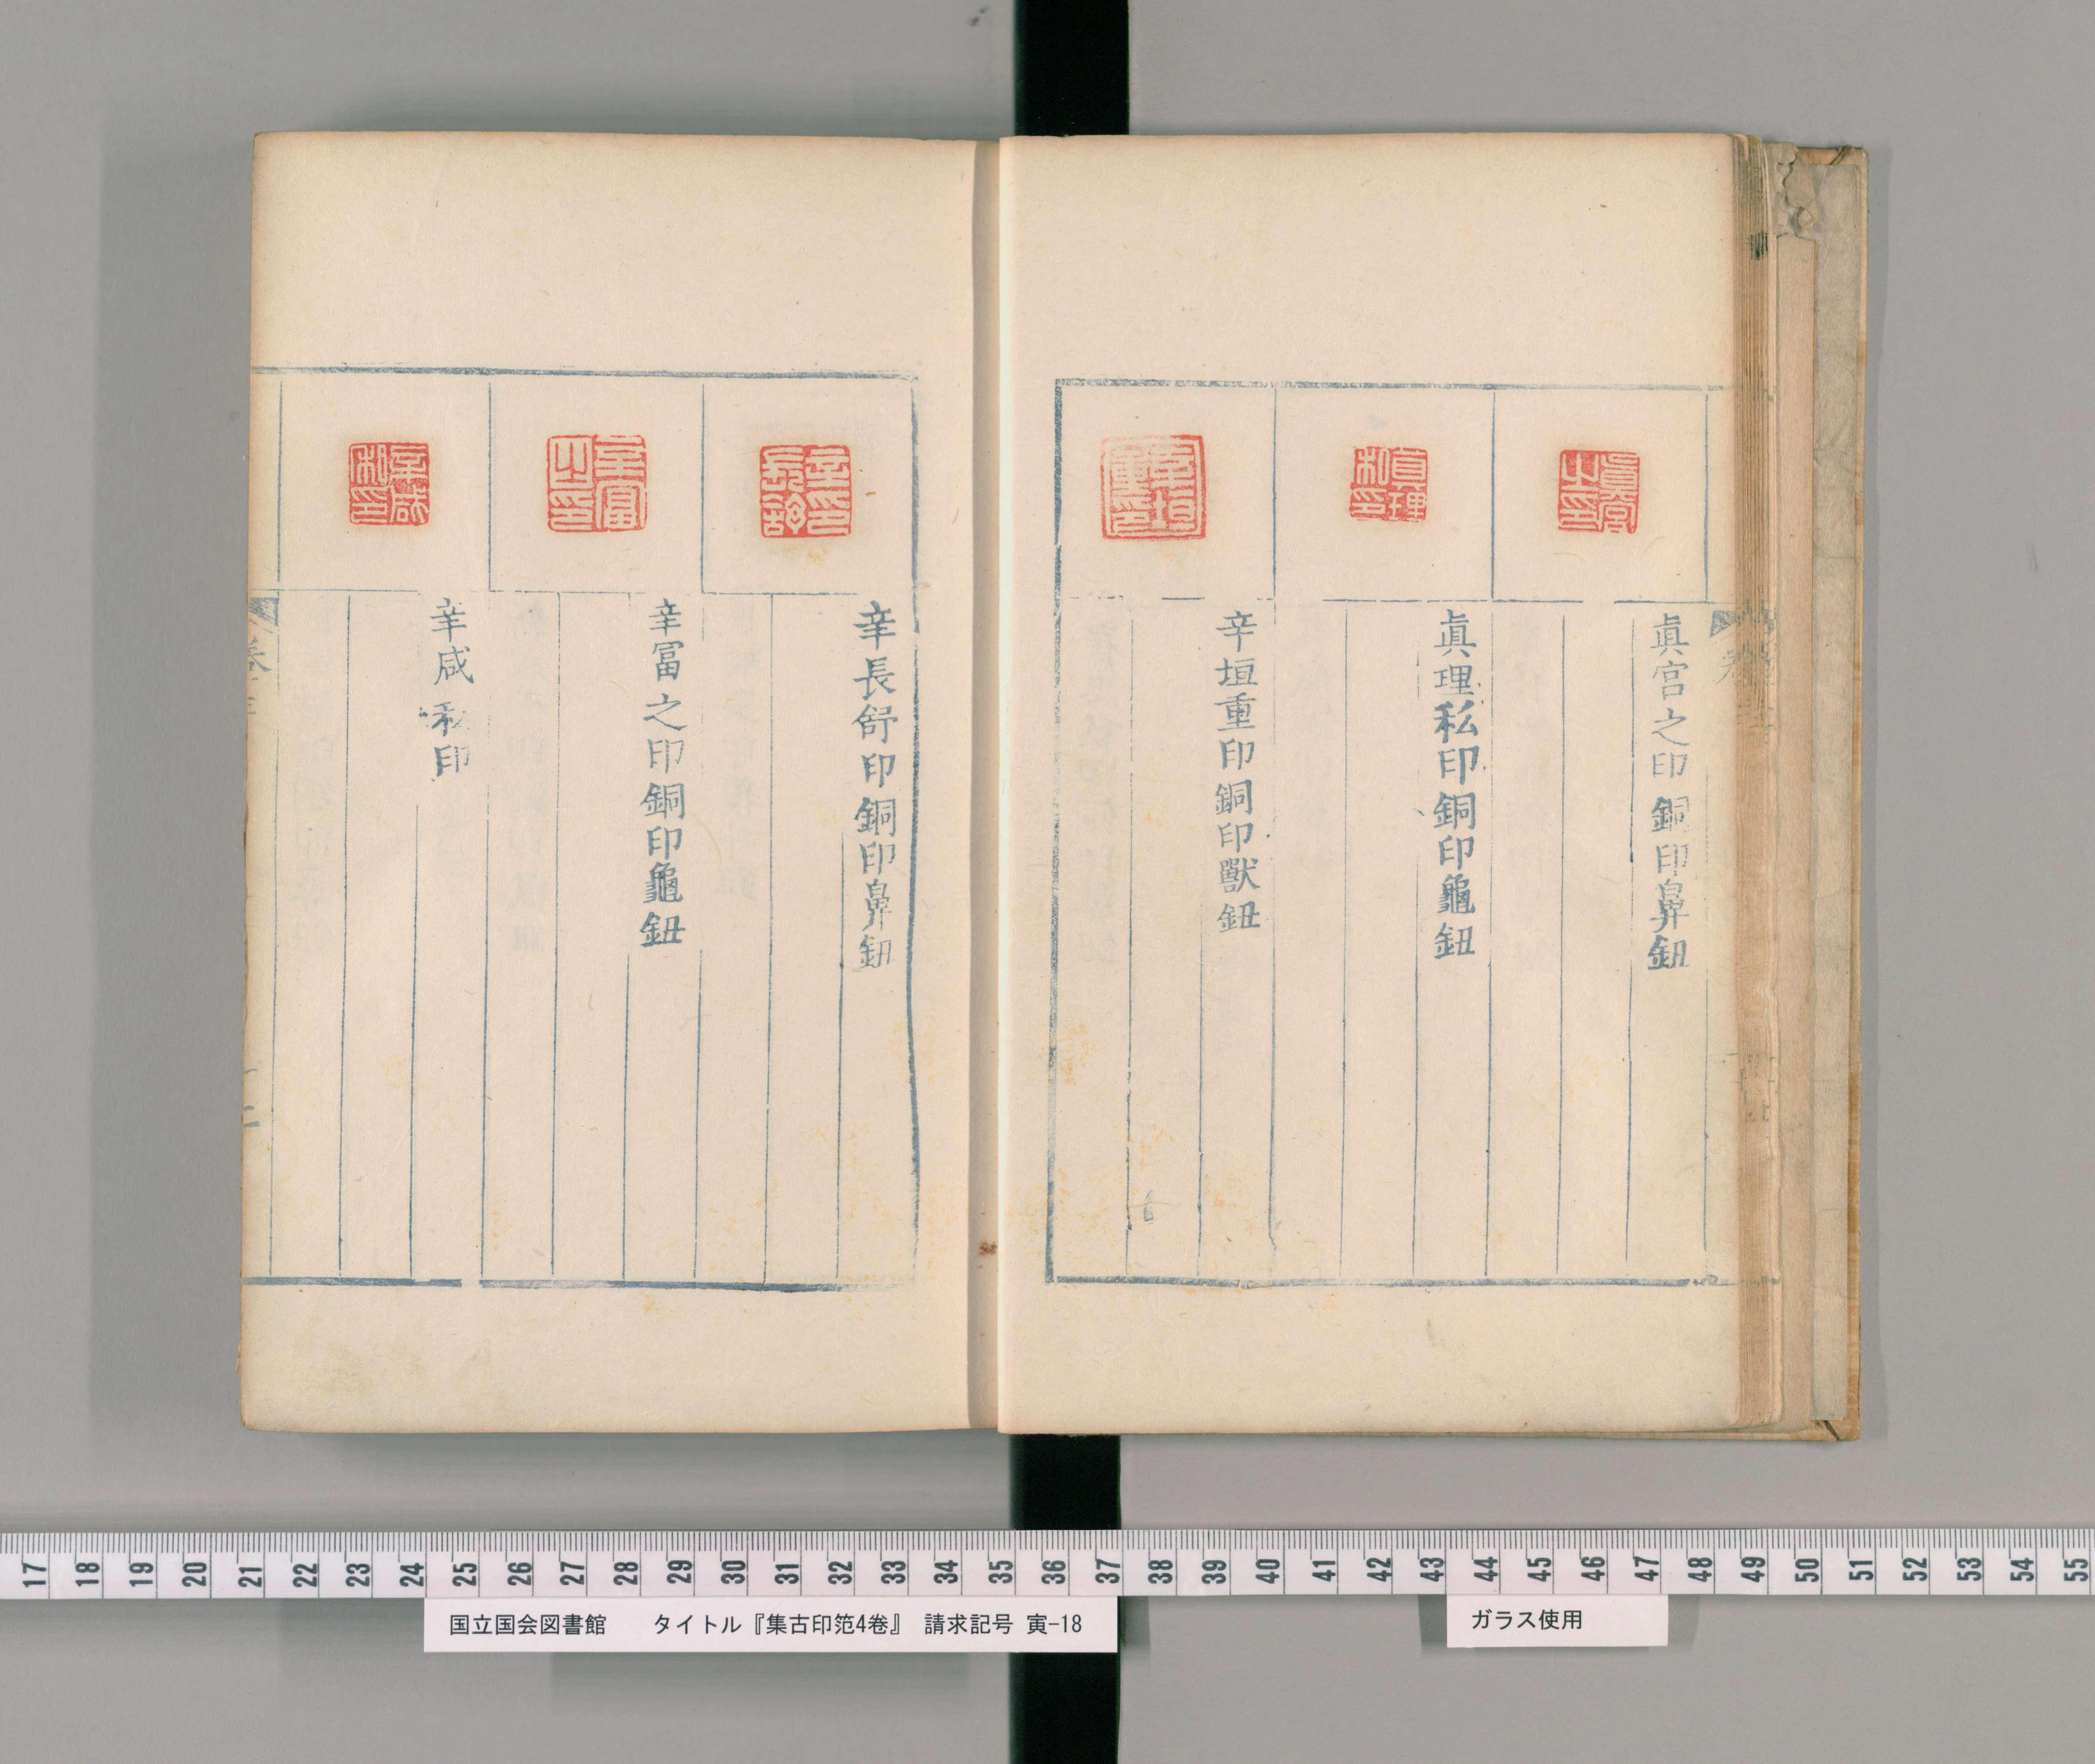 眞宫之印銅印鼻鈕
眞理私印銅印龜鈕
辛垣重印銅印獸鈕
辛長舒印銅印鼻鈕
辛冨之印銅印龜鈕
辛咸私印
17 18 19 20 21 22 23 24 25 26 27 28 29 30 31 32 33 34 35 36 37 38 39 40 41 42 43 44 45 46 47 48 49 50 51 52 53 54 55
国立国会図書館 タイトル『集古印笵4巻』 請求記号 寅-18
ガラス使用